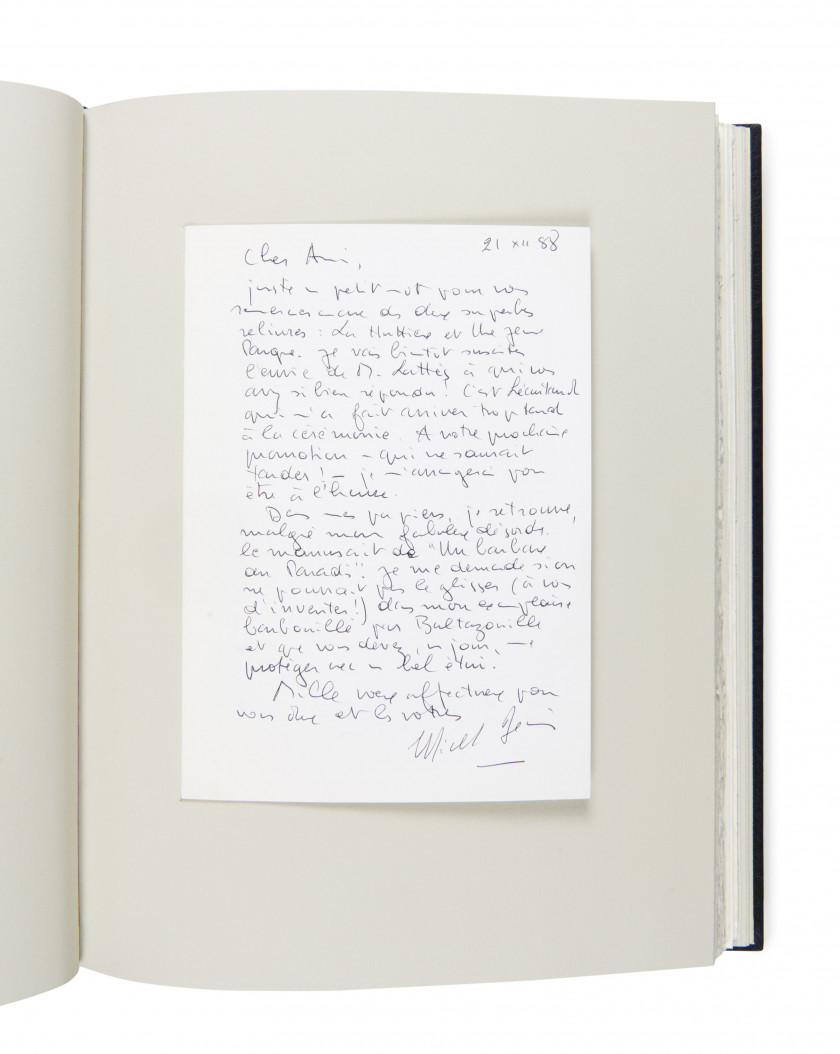 21 XII 88
Cher Ami,
juste un petit mot pour vous
remercier encore des deux superbes
reliures : La Huttière et Une Jeune
Parque. Je vais bientôt susciter
l'envie de M. Lattès à qui vous
avez si bien répondu ! C'est
qui m'a fait arriver trop tard
à la cérémonie. A votre prochaine
promotion – qui ne saurait
tarder ! – je m'arrangerai pour
être à l'heure.
Dans mes papiers, je retrouve,
malgré mon fabuleux désordre,
le manuscrit de "Un barbare
au Paradis". Je me demande si on
ne pourrait pas le glisser (à vous
d'inventer !) dans mon exemplaire
barbouillé par Baltazouille
et que vous devez, un jour, me
protéger avec un bel étui.
Mille voeux affectueux pour
vous deux et les vôtres
Michel